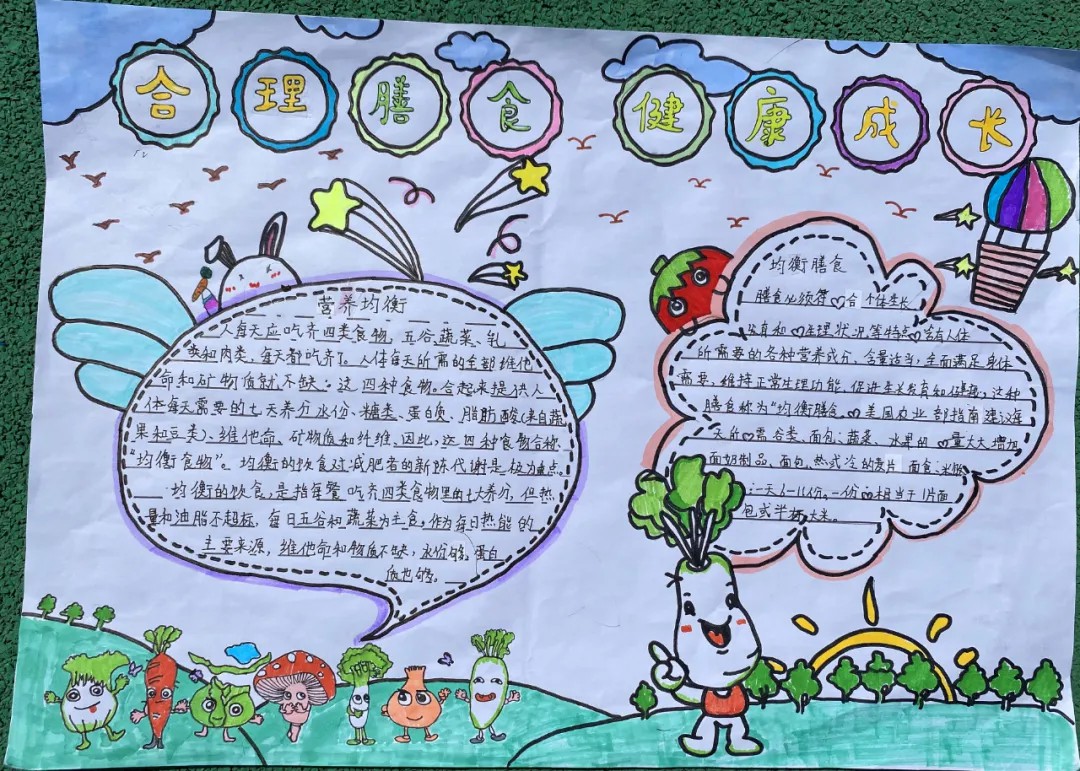 合理膳食 健康成长
营养均衡
人每天应吃齐四类食物，五谷、蔬菜、乳
类和肉类，每天都吃齐了，人体每天所需的全部维他
命和矿物质就不缺；这四种食物，合起来提供人
体每天需要的七大养分水份、糖类、蛋白质、脂肪酸（来自蔬
果和豆类）、维他命、矿物质和纤维，因此，这四种食物合称
“均衡食物”。均衡的饮食对减肥者的新陈代谢是极为重点。
均衡的饮食，是指每餐吃齐四类食物里由七大养分，但热
量和油脂不超标，每日五谷和蔬菜为主食，作为每日热能的
主要来源，维他命和物质不缺，水份够，蛋白
质也够。
均衡膳食
膳食必须符合个体生长
发育和生理状况等特点，含有人体
所需要的各种营养成分，含量适当，全面满足身体
需要，维持正常生理功能，促进生长发育和健康，这种
膳食称为“均衡膳食。美国农业部指南建议每
天所需谷类、面包；蔬菜、水果的量大大增加
面奶制品、面包、热或冷的麦片、面食；米饭
：一天6-11份。一份相当于1片面
包或半杯大米。